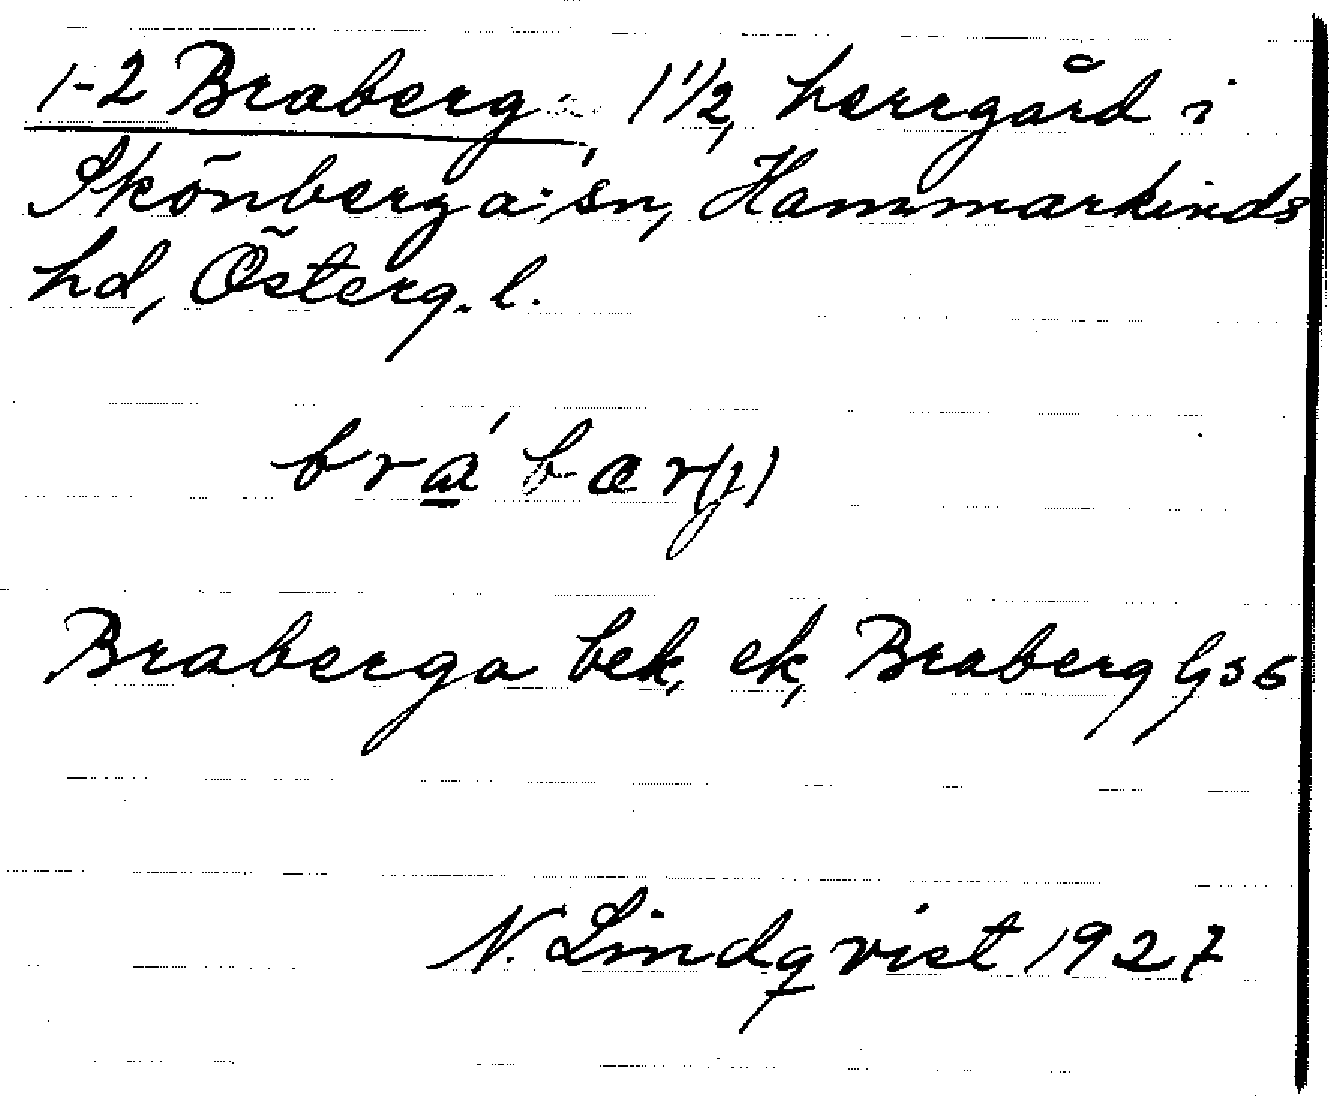 1-2 Braberg, 1 1/2, herrgård i
Skönberga sn, Hammarkinds
hd, Österg. l.
brá̱bær(j)
Braberga bek, ek, Braberg Gs6
N. Lindqvist 1927